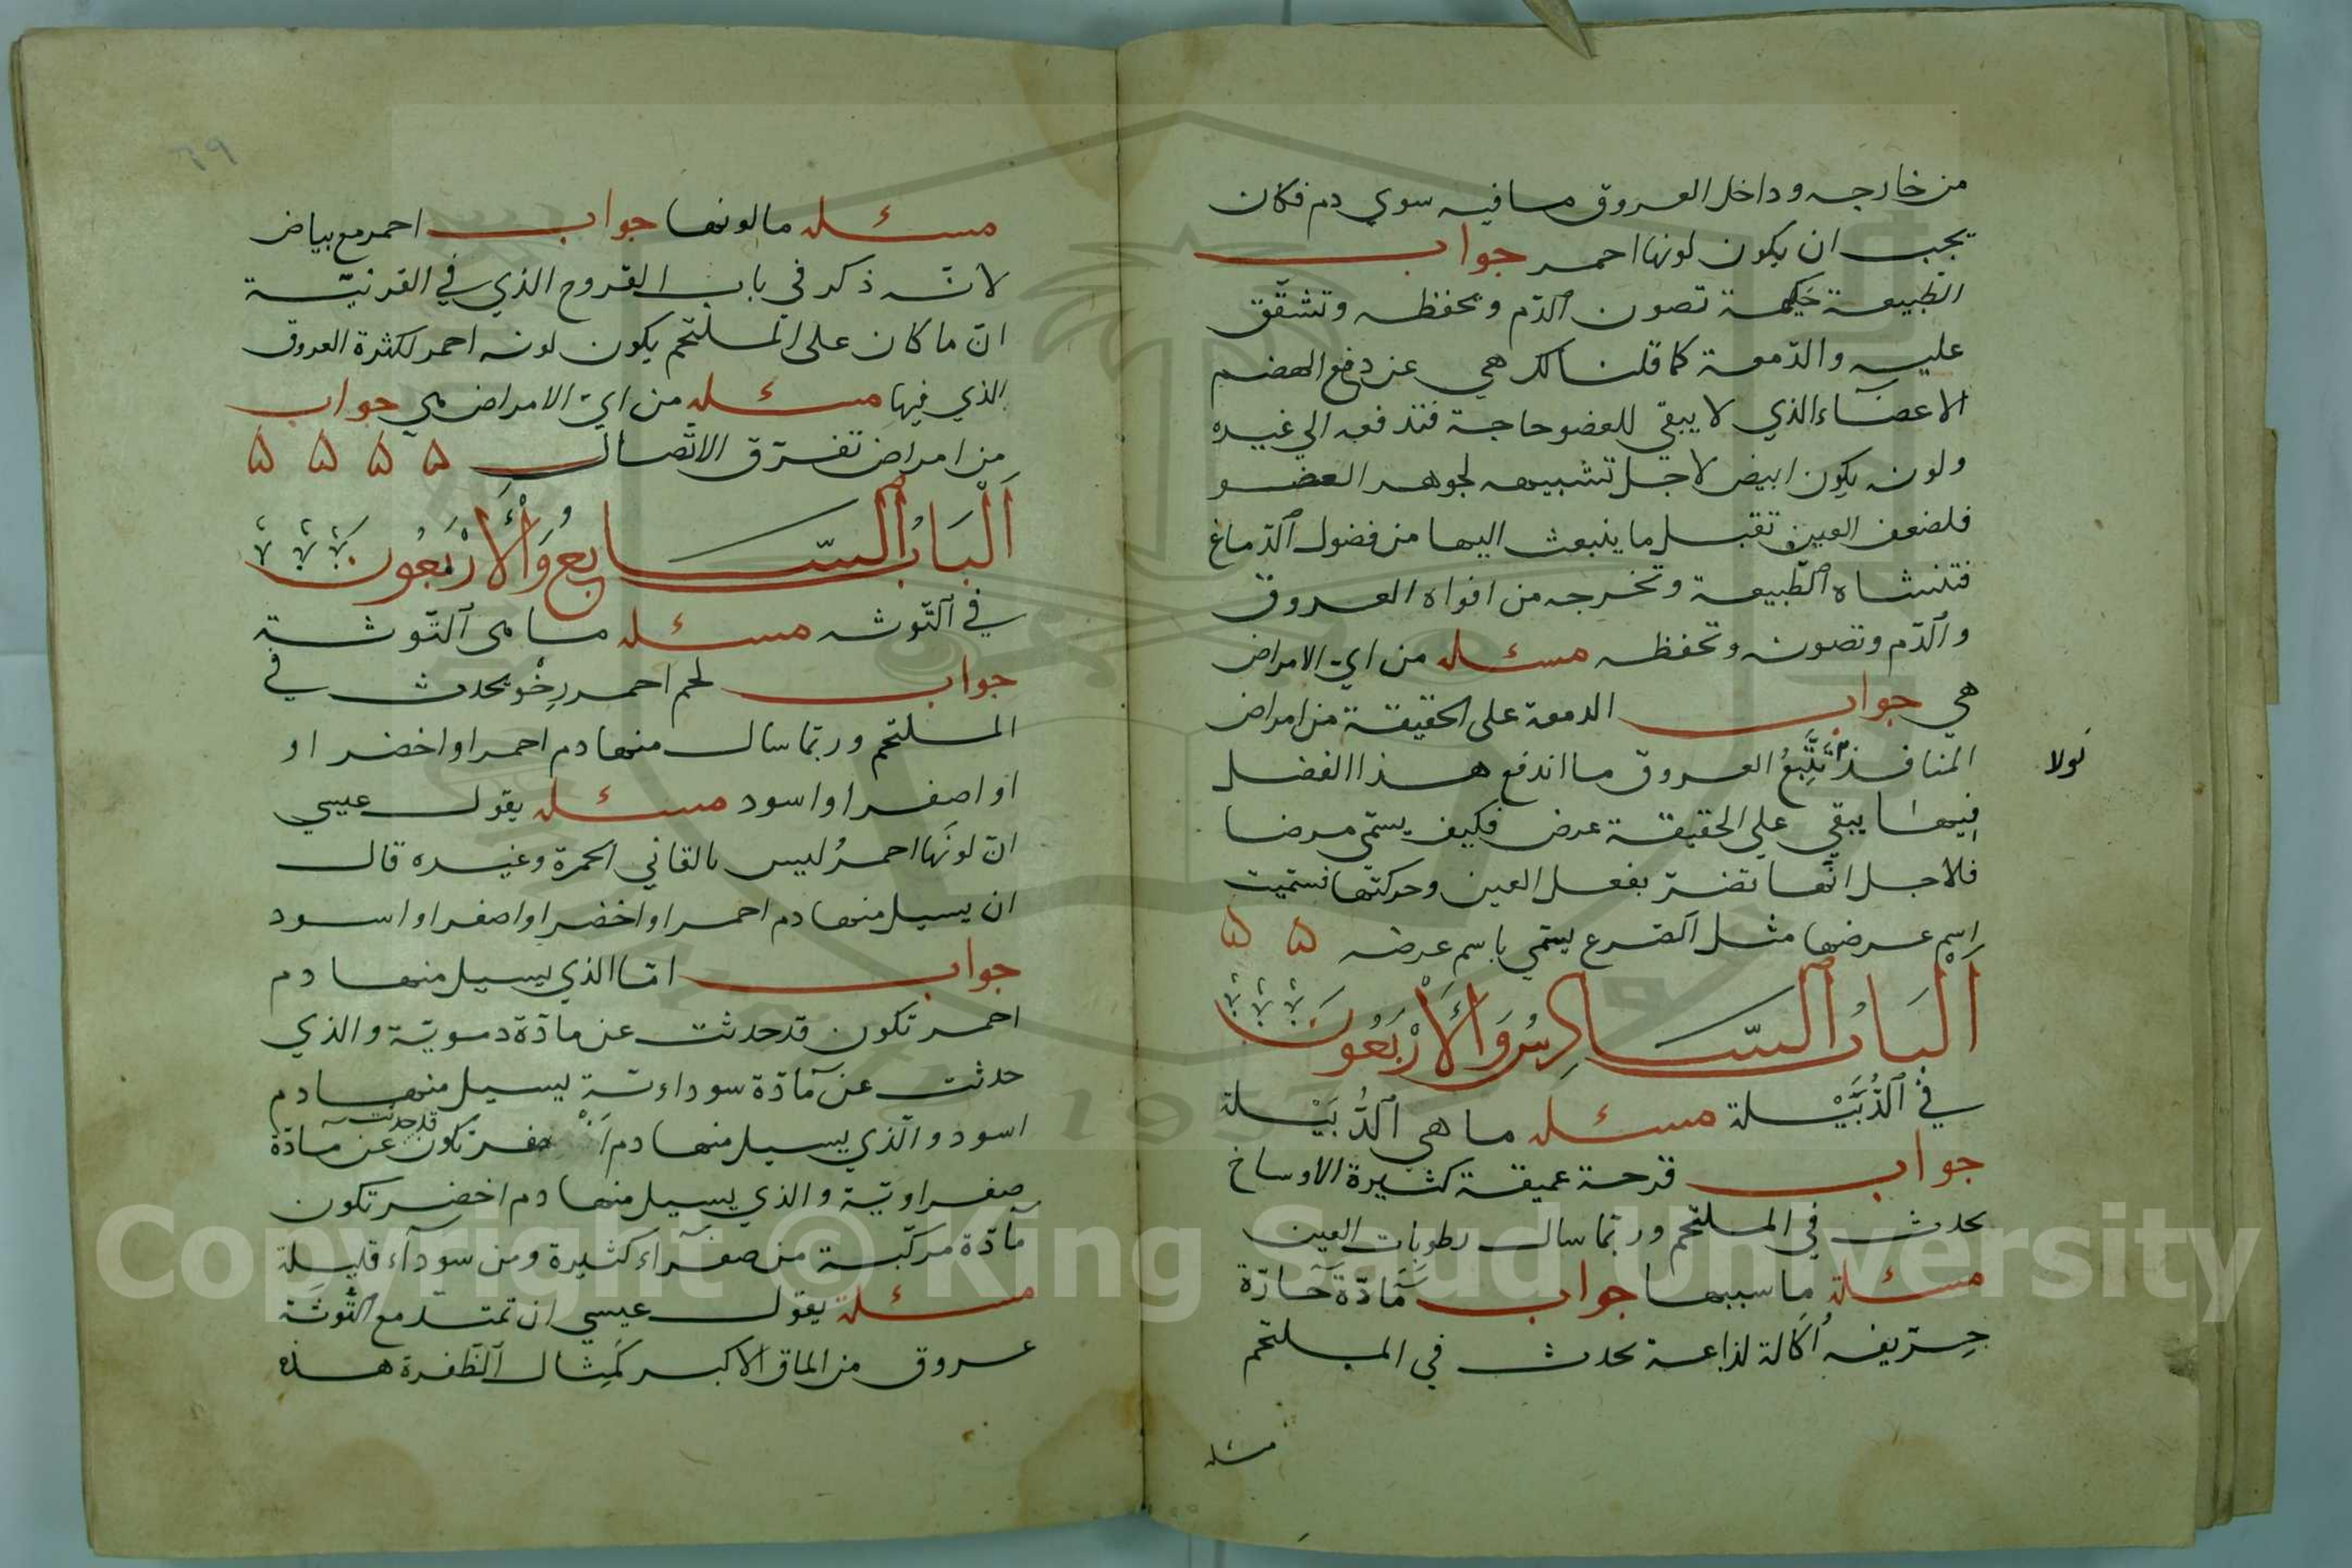 من خارجه وداخل العروق مافيه سوي دم فكان
يجب ان يكون لونها احمر جواب
الطبيعة حكيمة تصون الدّم وتحفظه وتشفّق
عليه والدّمعة كما قلنا لك هي عن دفع الهضم
الاعضآء الذي لا يبقي للعضو حاجة فتدفعه الي غيره
ولونه يكون ابيض لاجل تشبيهه لجوهر العضو
فلضعف العين تقبل ما ينبعث اليها من فضول الدّماغ
الطّبيعة وتخرجه من افواه العروق
والدّم وتصونه وتحفظه مسئله من ايّ الامراض
هي جواب الدمعة على الحقيقة من امراض
المنافذ العروق ما اندفع هذا الفضل
لولا
فيها يبقي علي الحقيقة عرض فكيف يسمّي مرضا
فلاجل انّها تضرّ بفعل العين وحركتها فسمّيت
اسم عرضها مثل الصّرع يسمّي باسم عرضه ۵ ۵
اَلْبَابُ السَّادِسُ وَالْأَرْبَعُونَ
في الدُّبَيْلة مسئله ما هي الدُّبَيْلة
جواب قرحة عميقة كثيرة الاوساخ
تحدث في الملتحم وربّما سال رطوبات العين
مسئلة ما سببها جواب مَادّة حَادّة
حِرّيفه اُكّالة لذاعة تحدث في الملتحم
مسئله
٦٩
مسئله ما لونها جواب احمر مع بياض
لانّه ذكر في باب القروح الذي في القرنيّة
انّ ما كان على الملتحم يكون لونه احمر لكثرة العروق
الذي فيها مسئله من ايّ الامراض هي جواب
من امراض تفرّق الاتّصال ۵ ۵ ۵ ۵
اَلْبَابُ السَّابِعُ وَالْأَرْبَعُونَ
في التّوثه مسئله ما هي التّوثة
جواب لحم احمر رِخْو يحدث في
الملتحم وربّما سال منها دم احمر او اخضر او
او اصفر او اسود مسئله يقول عيسي
انّ لونَها احمرُ ليس بالقاني الحمرة وغيره قال
ان يسيل منها دم احمر او اخضر او اصفر او اسود
جواب امّا الذي يسيل منها دم
احمر تكون قد حدثت عن مادّة دمويّة والذي
حدثت عن مآدّة سوداويّة يسيل منها دم
اسود والّذي يسيل منها دم اَصْفر تكون قد حدثت عن مآدّة
صفراويّة والذي يسيل منها دم اخضر تكون
مآدّة مركّبة من صفرآء كثيرة ومن سودآء قليلة
مسئلة يقول عيسي ان تمتدّ مع التُّوثَة
عروق من الماق الاكبر كَمِثال الظّفرة هذه
Copyright © King Saud University
1957